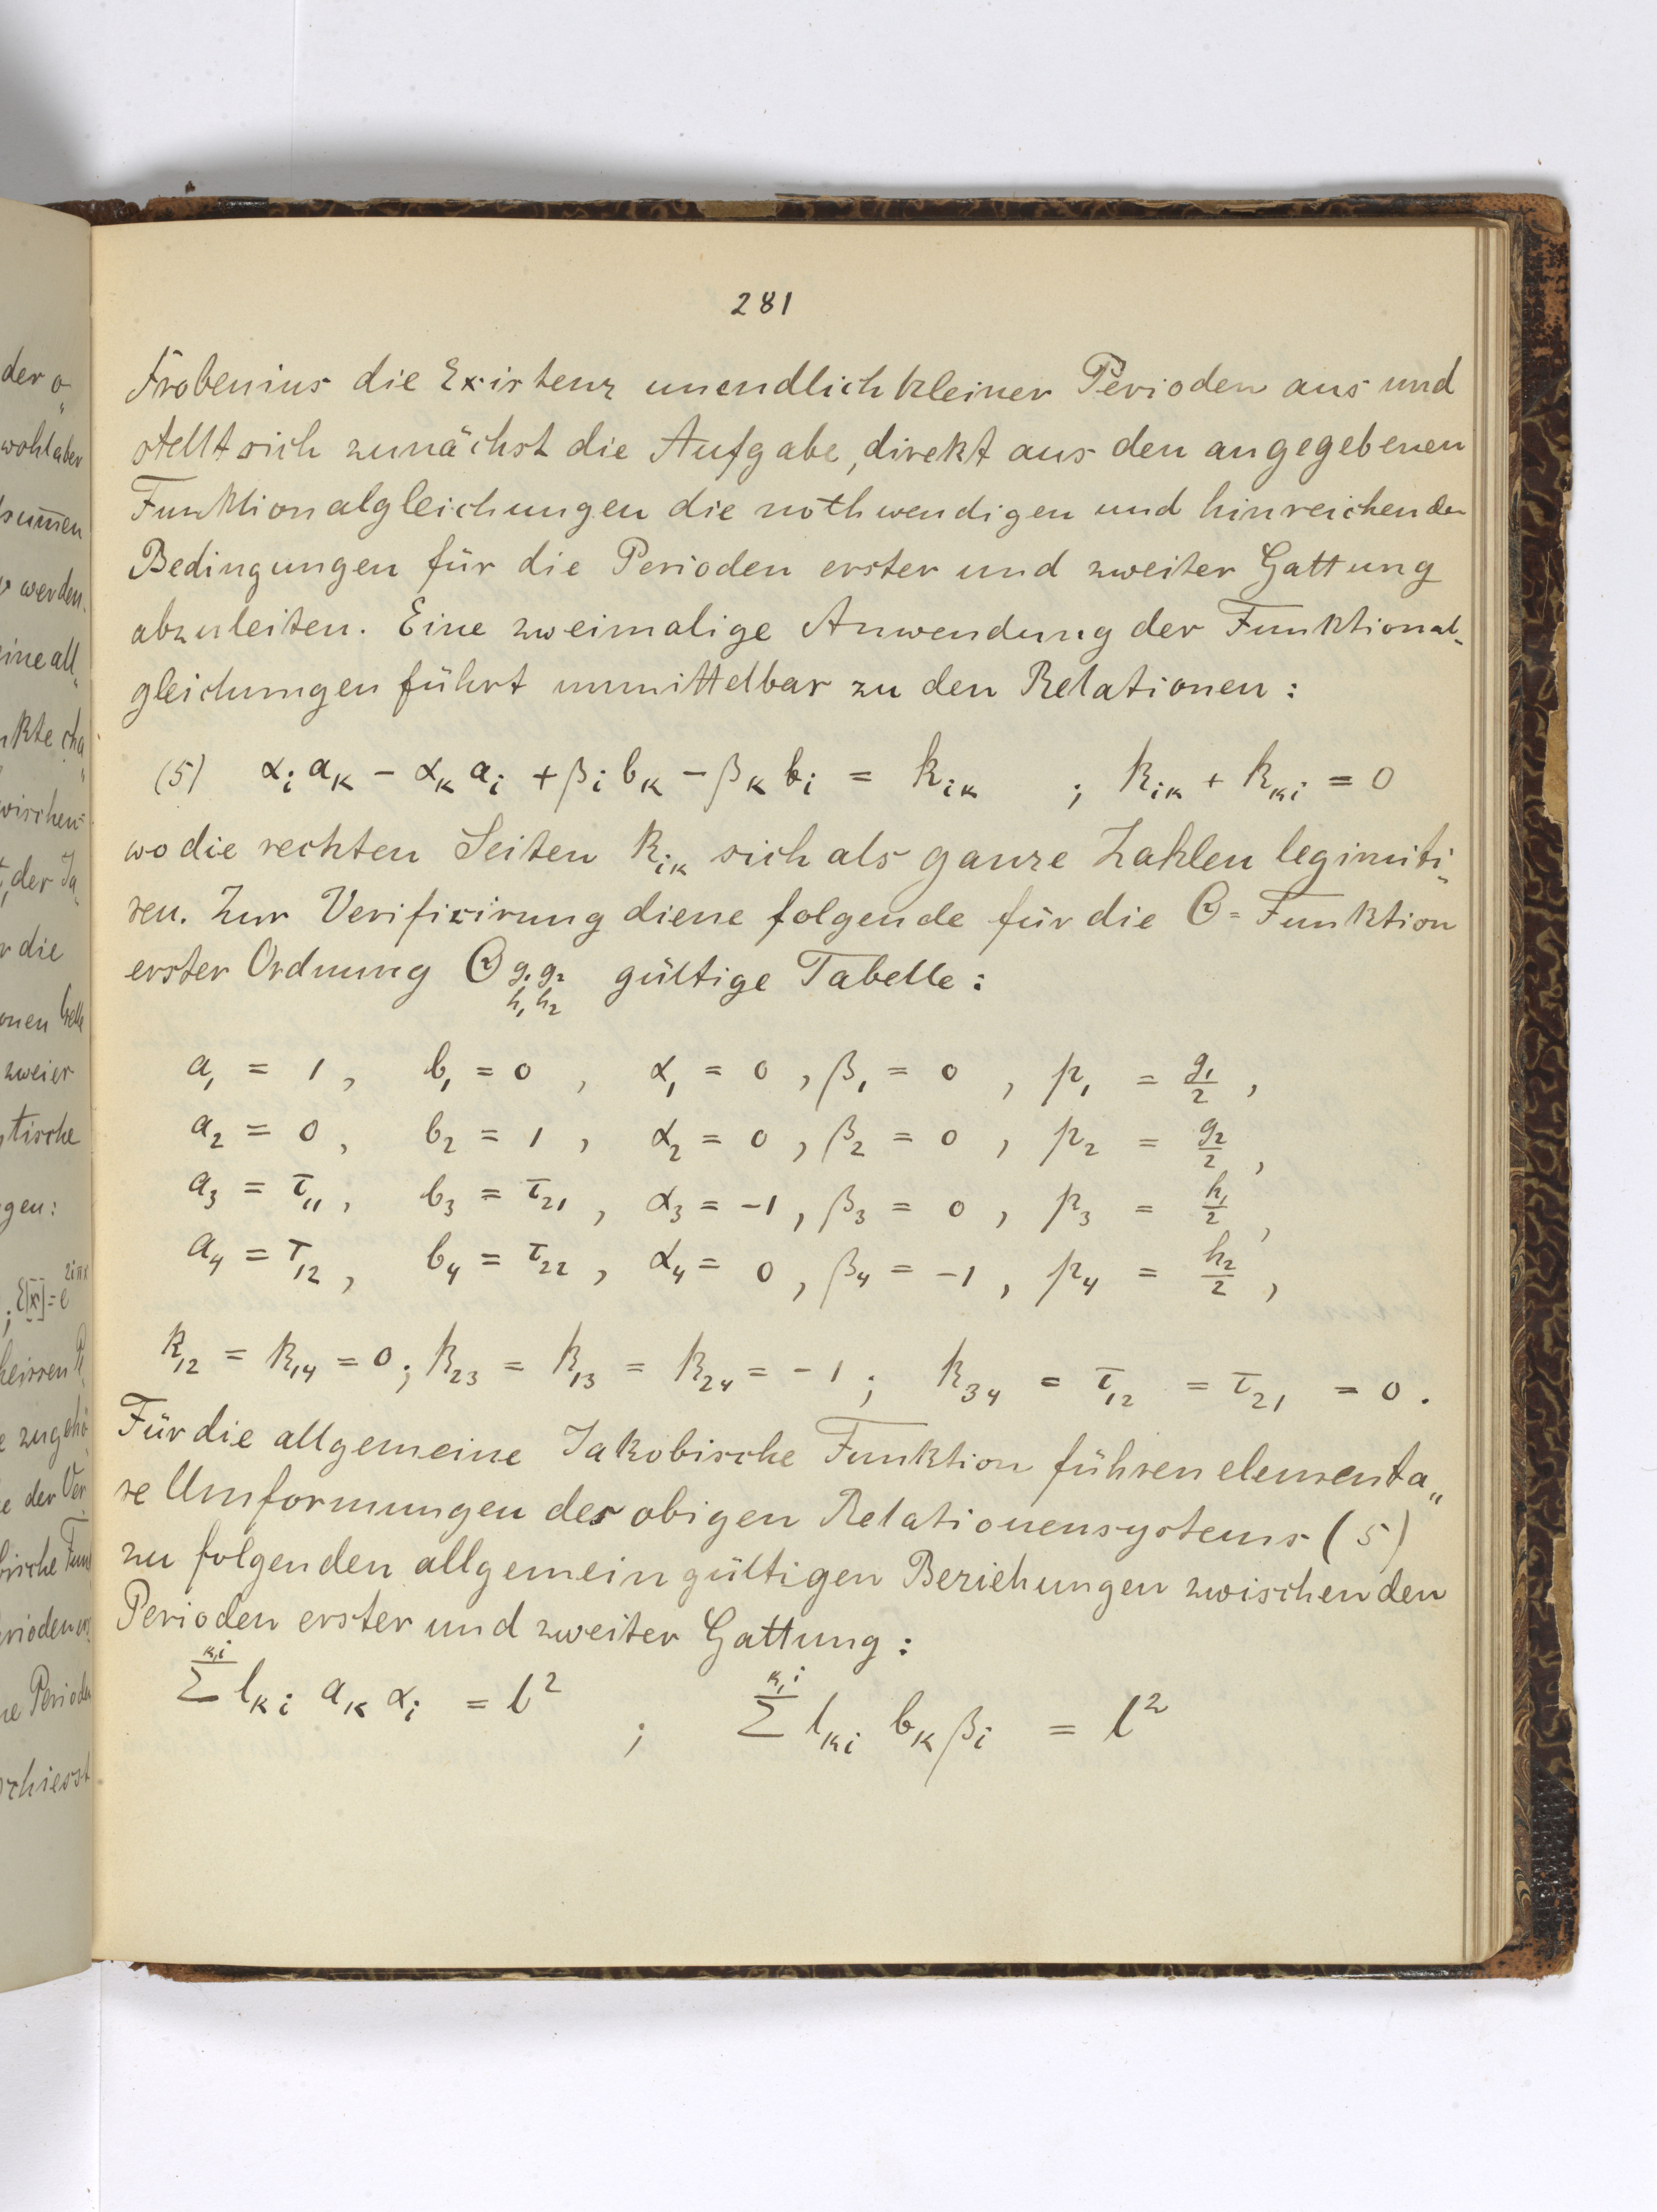 281
Frobenius die Existenz unendlich kleiner Perioden aus und
stellt sich zunächst die Aufgabe, direkt aus den angegebenen
Funktionalgleichungen die nothwendigen und hinreichenden
Bedingungen für die Perioden erster und zweiter Gattung
abzuleiten. Eine zweimalige Anwendung der Funktional-
gleichungen führt unmittelbar zu den Relationen:
(5) αᵢ aₖ − αₖ aᵢ + βᵢ bₖ − βₖ bᵢ = kᵢₖ ; kᵢₖ + kₖᵢ = 0
wo die rechten Seiten kᵢₖ sich als ganze Zahlen legimiti„
ren. Zur Verifizirung diene folgende für die Θ=Funktion
erster Ordnung Θ g₁g₂ gültige Tabelle:
h₁h₂
a₁ = 1, b₁ = 0, α₁ = 0, β₁ = 0, p₁ = g₁/2,
a₂ = 0, b₂ = 1, α₂ = 0, β₂ = 0, p₂ = g₂/2,
a₃ = τ₁₁, b₃ = τ₂₁, α₃ = −1, β₃ = 0, p₃ = h₁/2,
a₄ = τ₁₂, b₄ = τ₂₂, α₄ = 0, β₄ = −1, p₄ = h₂/2,
k₁₂ = k₁₄ = 0; k₂₃ = k₁₃ = k₂₄ = −1; k₃₄ = τ₁₂ = τ₂₁ = 0.
Für die allgemeine Jakobische Funktion führen elementa„
re Umformungen des obigen Relationensystems (5)
zu folgenden allgemein gültigen Beziehungen zwischen den
Perioden erster und zweiter Gattung:
k,i k,i
Σ lₖᵢ aₖ αᵢ = l² ; Σ lₖᵢ bₖ βᵢ = l²